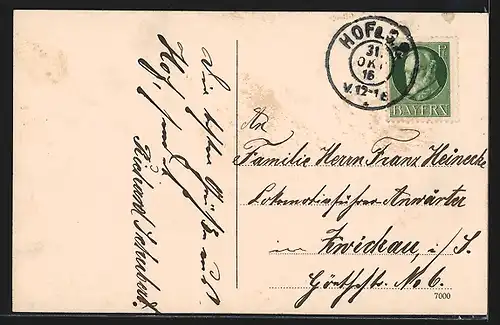 Die besten Grüße aus
Hof, sendet
Richard Schubert.
HOF 1.
31.
OKT
16
V.12-1
BAYERN
An
Familie Herrn Franz Heinecke
Lokomotivführer Anwärter
in Zwickau, i/S.
Göthestr. No 6.
7000